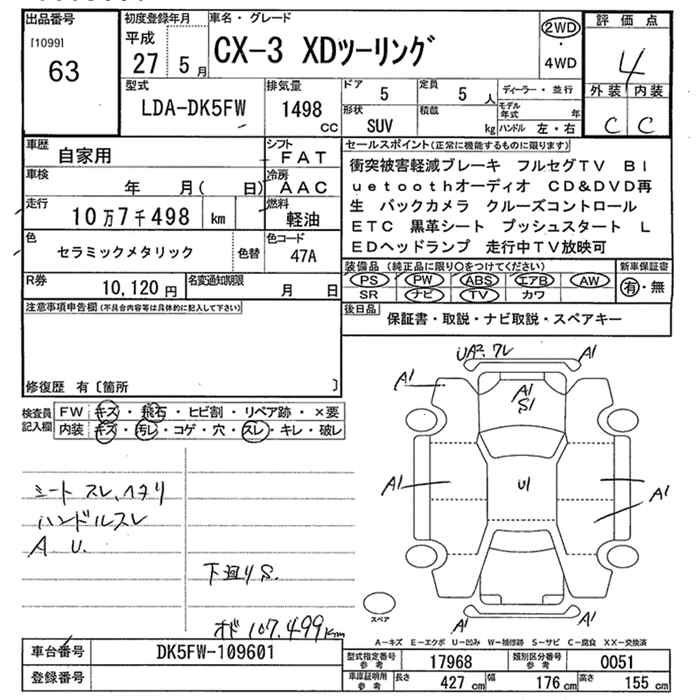 出品番号
[1099]
63
初度登録年月
平成
27 5月
車名・グレード
CX-3 XDツーリング
2WD
・
4WD
評価点
4
外装 内装
C C
型式
LDA-DK5FW
排気量
1498
CC
ドア
5
定員
5人
形状
SUV
積載
kg
ディーラー・並行
モデル年式 年
ハンドル 左・右
車歴
自家用
シフト
FAT
車検
年 月( 日)
冷房
AAC
走行
10万7千498 km
燃料
軽油
色
セラミックメタリック
色替
色コード
47A
R券
10,120円
名変通知期限
月 日
セールスポイント(正常に機能するものに限ります)
衝突被害軽減ブレーキ フルセグTV Bl
uetoothオーディオ CD&DVD再
生 バックカメラ クルーズコントロール
ETC 黒革シート プッシュスタート L
EDヘッドランプ 走行中TV放映可
装備品(純正品に限り○をつけてください)
PS PW ABS エアB AW
SR ナビ TV カワ
新車保証書
有・無
後日品
保証書・取説・ナビ取説・スペアキー
注意事項申告欄(不具合内容等は具体的に記入して下さい)
修復歴 有〔箇所 〕
検査員
記入欄
FW キズ・飛石・ヒビ割・リペア跡・×要
内装 キズ・汚レ・コゲ・穴・スレ・キレ・破レ
シート スレ、ヘタリ
ハンドルスレ
A U.
下廻りS.
オド 107,499km
UA2. ワレ
A1
A1
A1
S1
A1
U1
A1
A1
A1
スペア
A-キズ E-エクボ U-凹み W-補修跡 S-サビ C-腐食 XX-交換済
車台番号
DK5FW-109601
登録番号
型式指定番号
参考
17968
類別区分番号
参考
0051
車庫証明用
参考
長さ
427 cm
幅
176 cm
高さ
155 cm